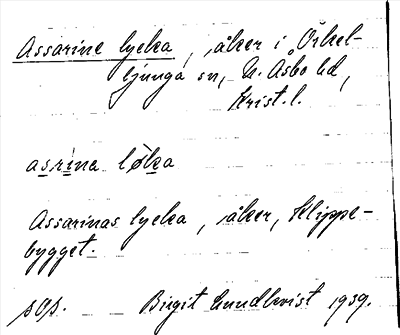 Assarine lycka, åker i Örkel-
ljunga sn, N. Asbo hd,
Krist. l.
asrina løka
Assarinas lycka, åker, Klippe-
bygget.
sop.
Birgit Lundkvist 1939.